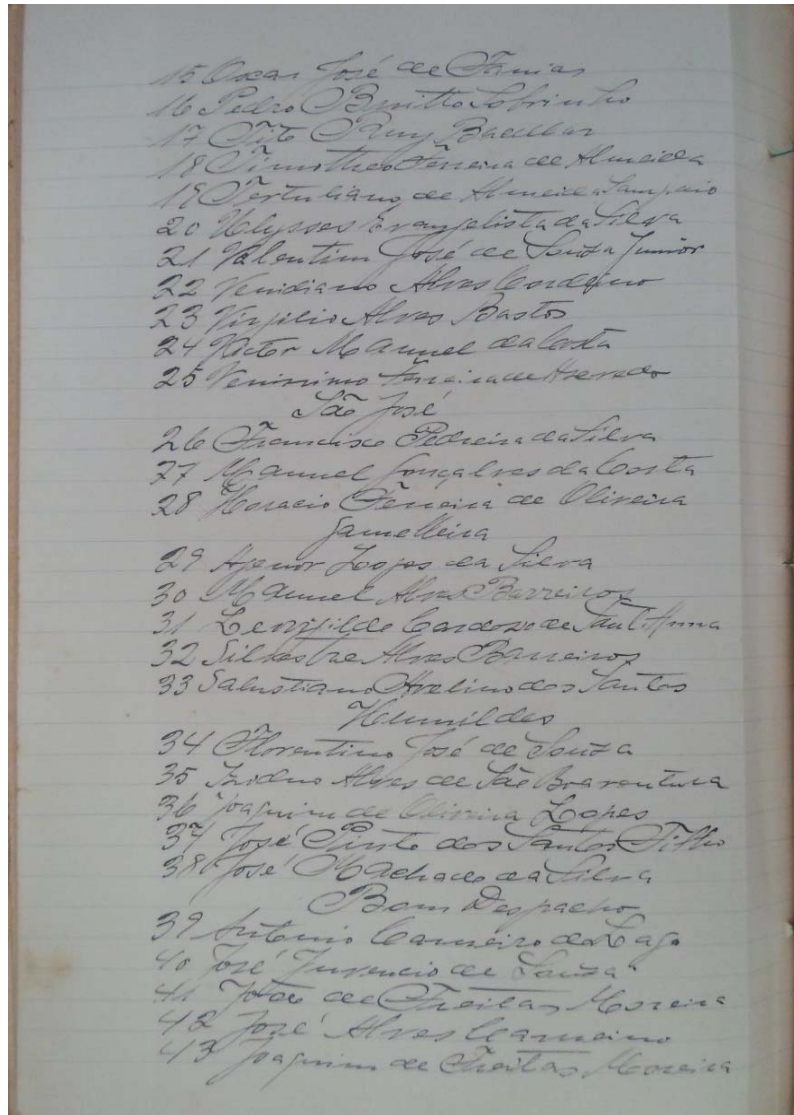 15 Oscar José de Farias
16 Pedro Britto Sobrinho
17 Tito Ruy Bacellar
18 Timotheo Ferreira de Almeida
19 Tertuliano de Almeida Sampaio
20 Ulysses Evangelista da Silva
21 Valentim José de Souza Junior
22 Venidiano Alves Cordeiro
23 Virgilio Alves Bastos
24 Victor Manuel da Costa
25 Verissimo Ferreira de Azevedo
São José
26 Francisco Pedreira da Silva
27 Manuel Gonçalves da Costa
28 Horacio Ferreira de Oliveira
Gamelleira
29 Agenor Lopes da Silva
30 Manuel Alves Barreiros
31 Cardozo de Sant'Anna
32 Silvestre Alves Barreiros
33 Salustiano Avelino dos Santos
Humildes
34 Florentino José de Souza
35 Alves de São Boaventura
36 Joaquim de Oliveira Lopes
37 José Pinto dos Santos Filho
38 José Machado da Silva
Bom Despacho
39 Antonio Carneiro do Lago
40 José Juvencio de Souza
41 João de Freitas Moreira
42 José Alves Carneiro
43 Joaquim de Freitas Moreira